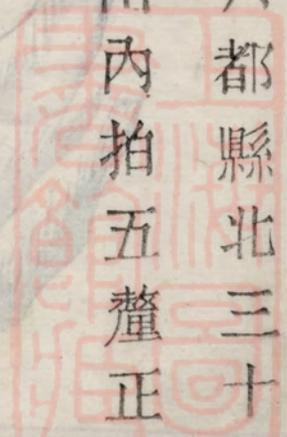 都縣北三十
內拍五釐正